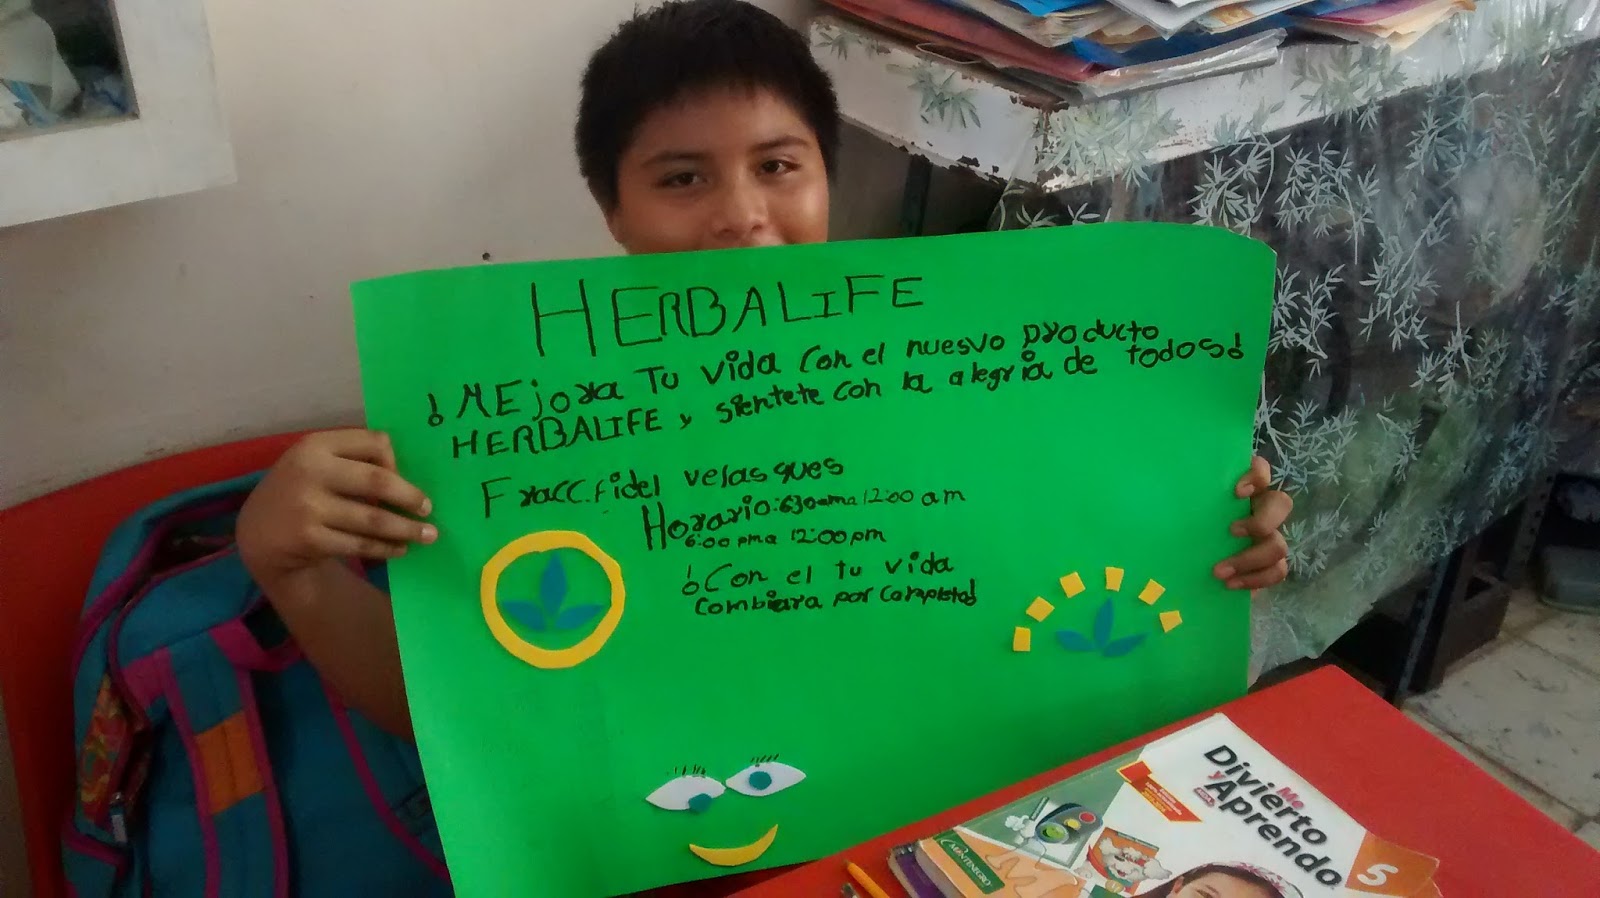 HERBALIFE
¡MEjora Tu vida con el nuesvo producto
HERBALIFE y sientete con la alegria de todos!
Fracc.fidel velasques
Horario:630ama12:00 am
6:00 pma 12:00pm
¡Con el tu vida
combiara por completo!
Me
Divierto
y Aprendo
5
MONTENEGRO